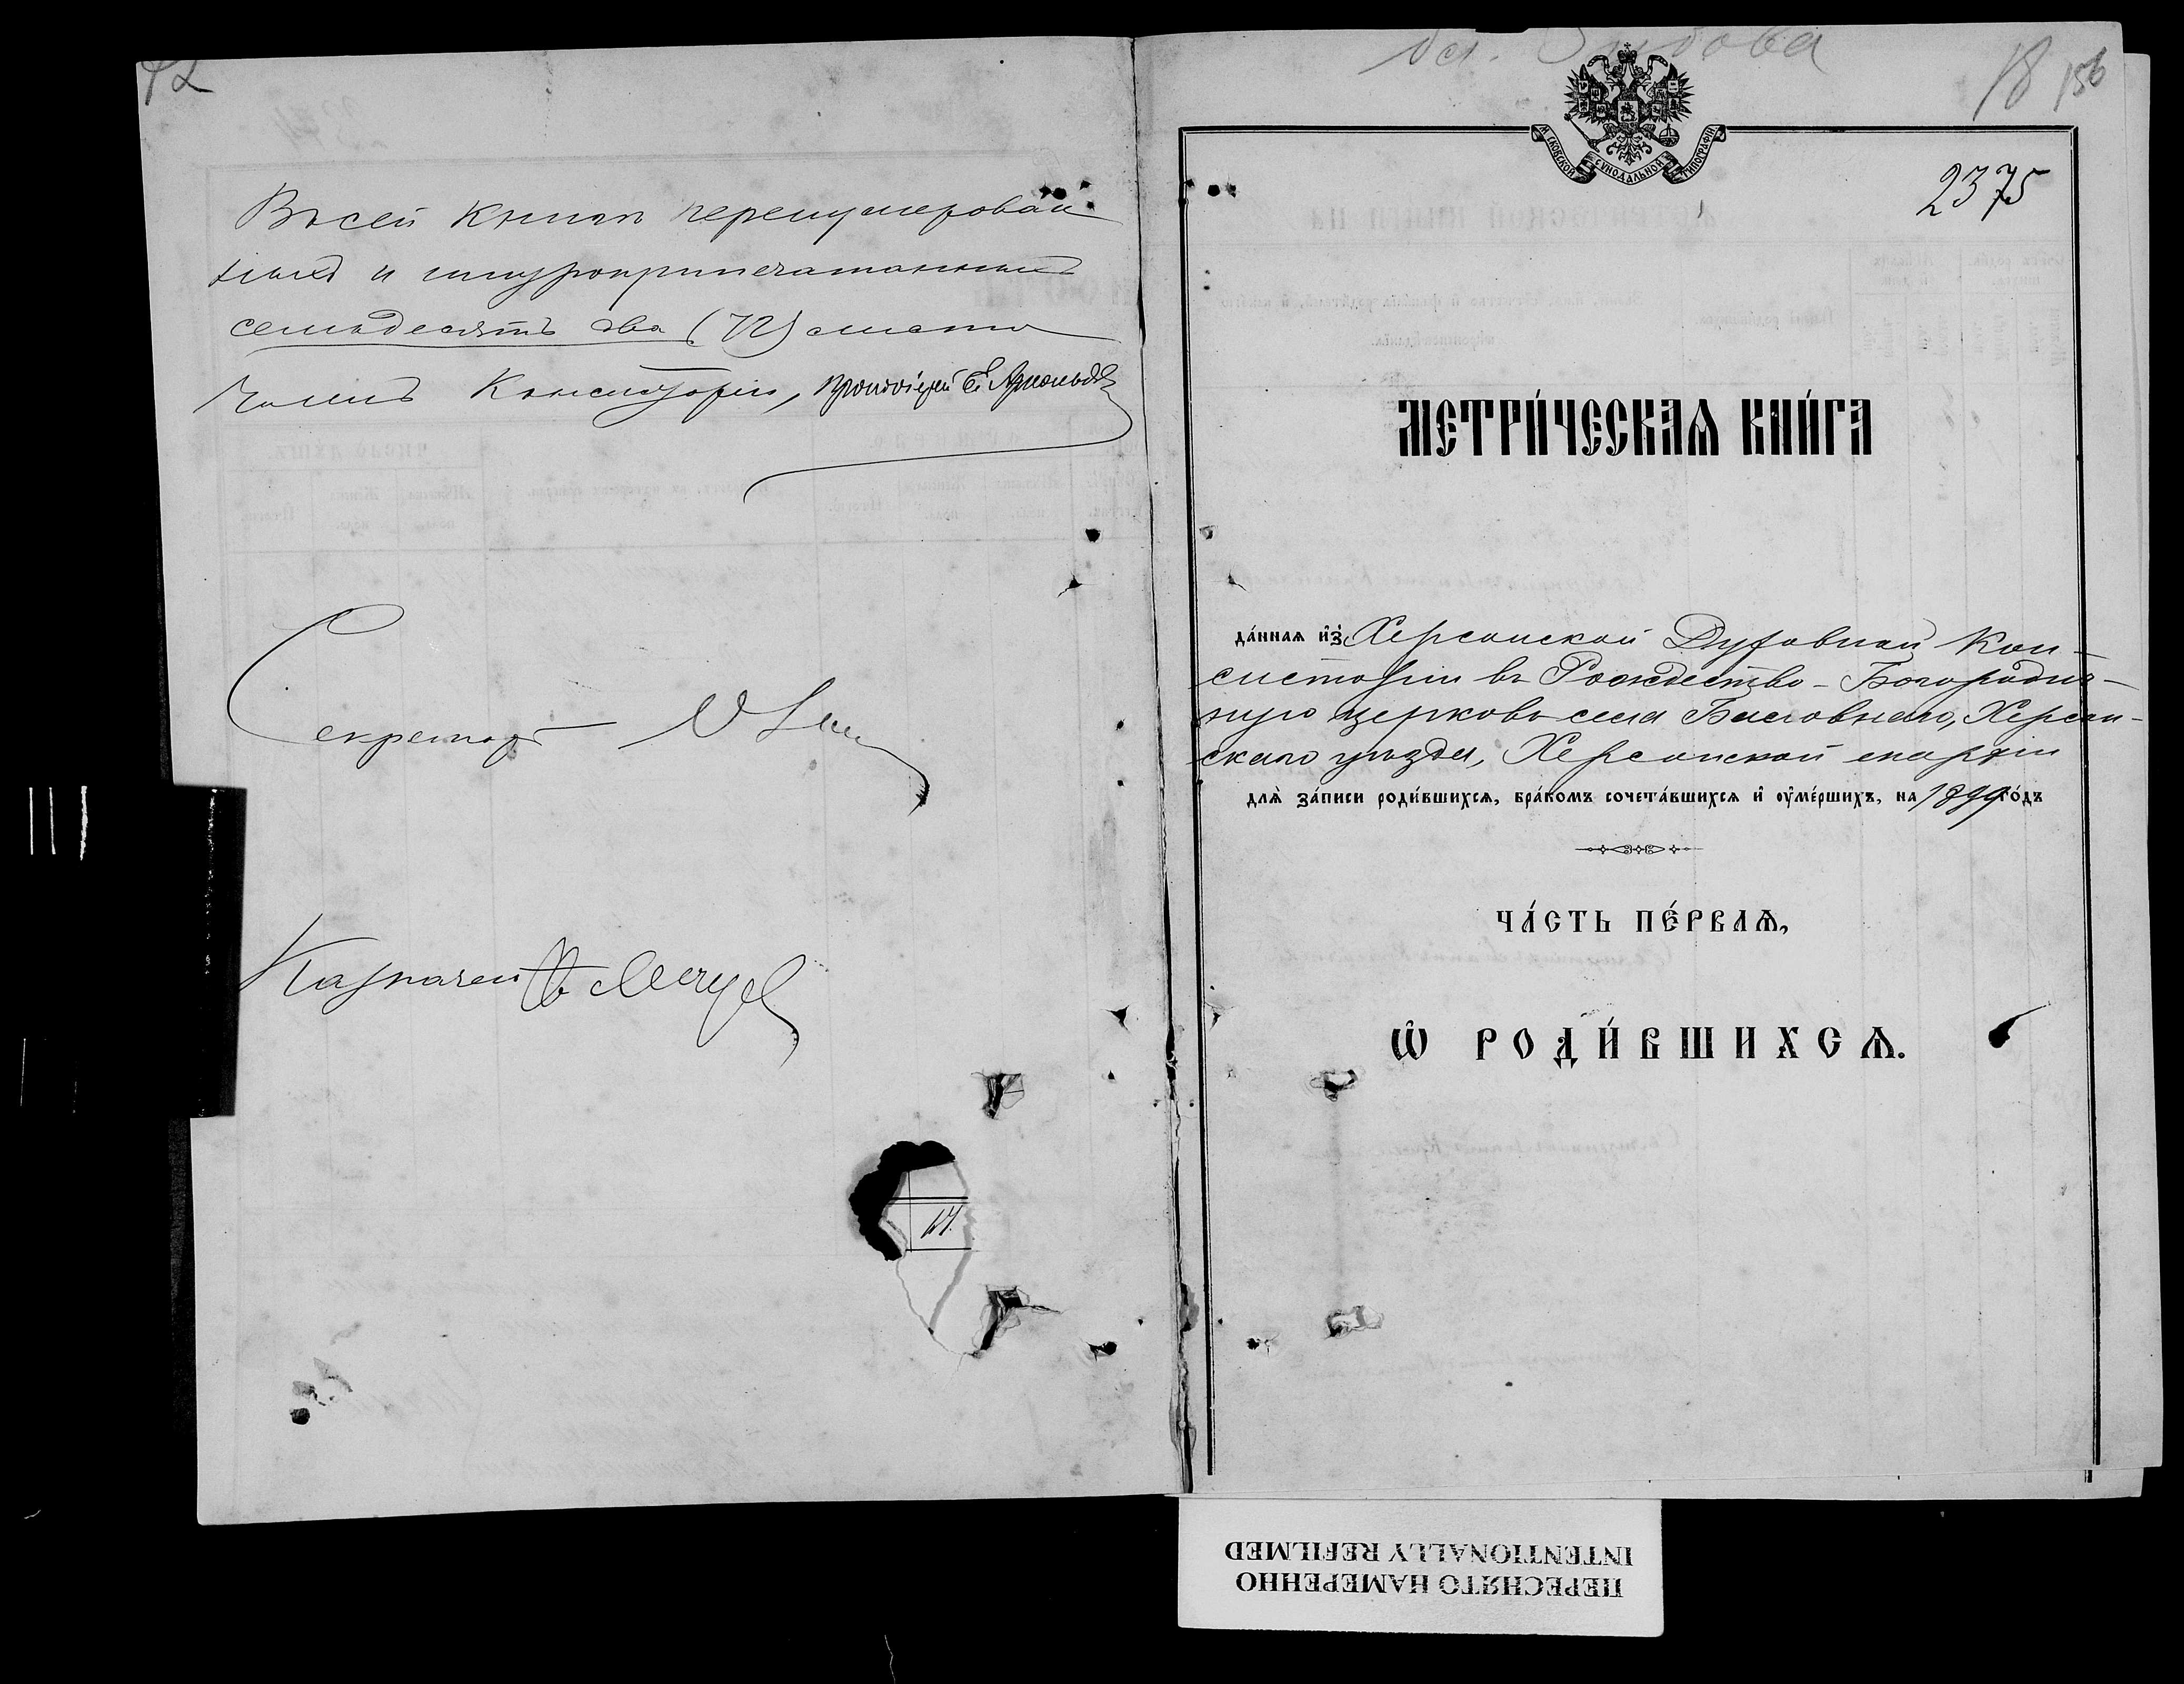 72
Въ сей книгѣ перенумерован
ныхъ и шнуроприпечатанныхъ
семьдесятъ два (72) листа
Членъ Консисторіи, Протоіерей
Секретарь
Казначей
18 156
МОСКОВСКОЙ СѴНОДАЛЬНОЙ ТИПОГРАФІИ
2375
МЕТРИ́ЧЕСКАѦ КНИ́ГА
да́ннаѧ и҆з̾ Херсонской Духовной Кон-
систоріи въ Рождество-Богородич-
ную церковь села Баловнаго, Херсон-
скаго уѣзда, Херсонской епархіи
длѧ̀ за́писи роди́вшихсѧ, бра́комъ сочета́вшихсѧ и҆ ᲂу҆ме́ршихъ, на 1899 го́дъ
ЧА́СТЬ ПЕ́РВАѦ,
Ѡ҆ РОДИ́ВШИХСѦ.
17.
ПЕРЕСНЯТО НАМЕРЕННО
INTENTIONALLY REFILMED